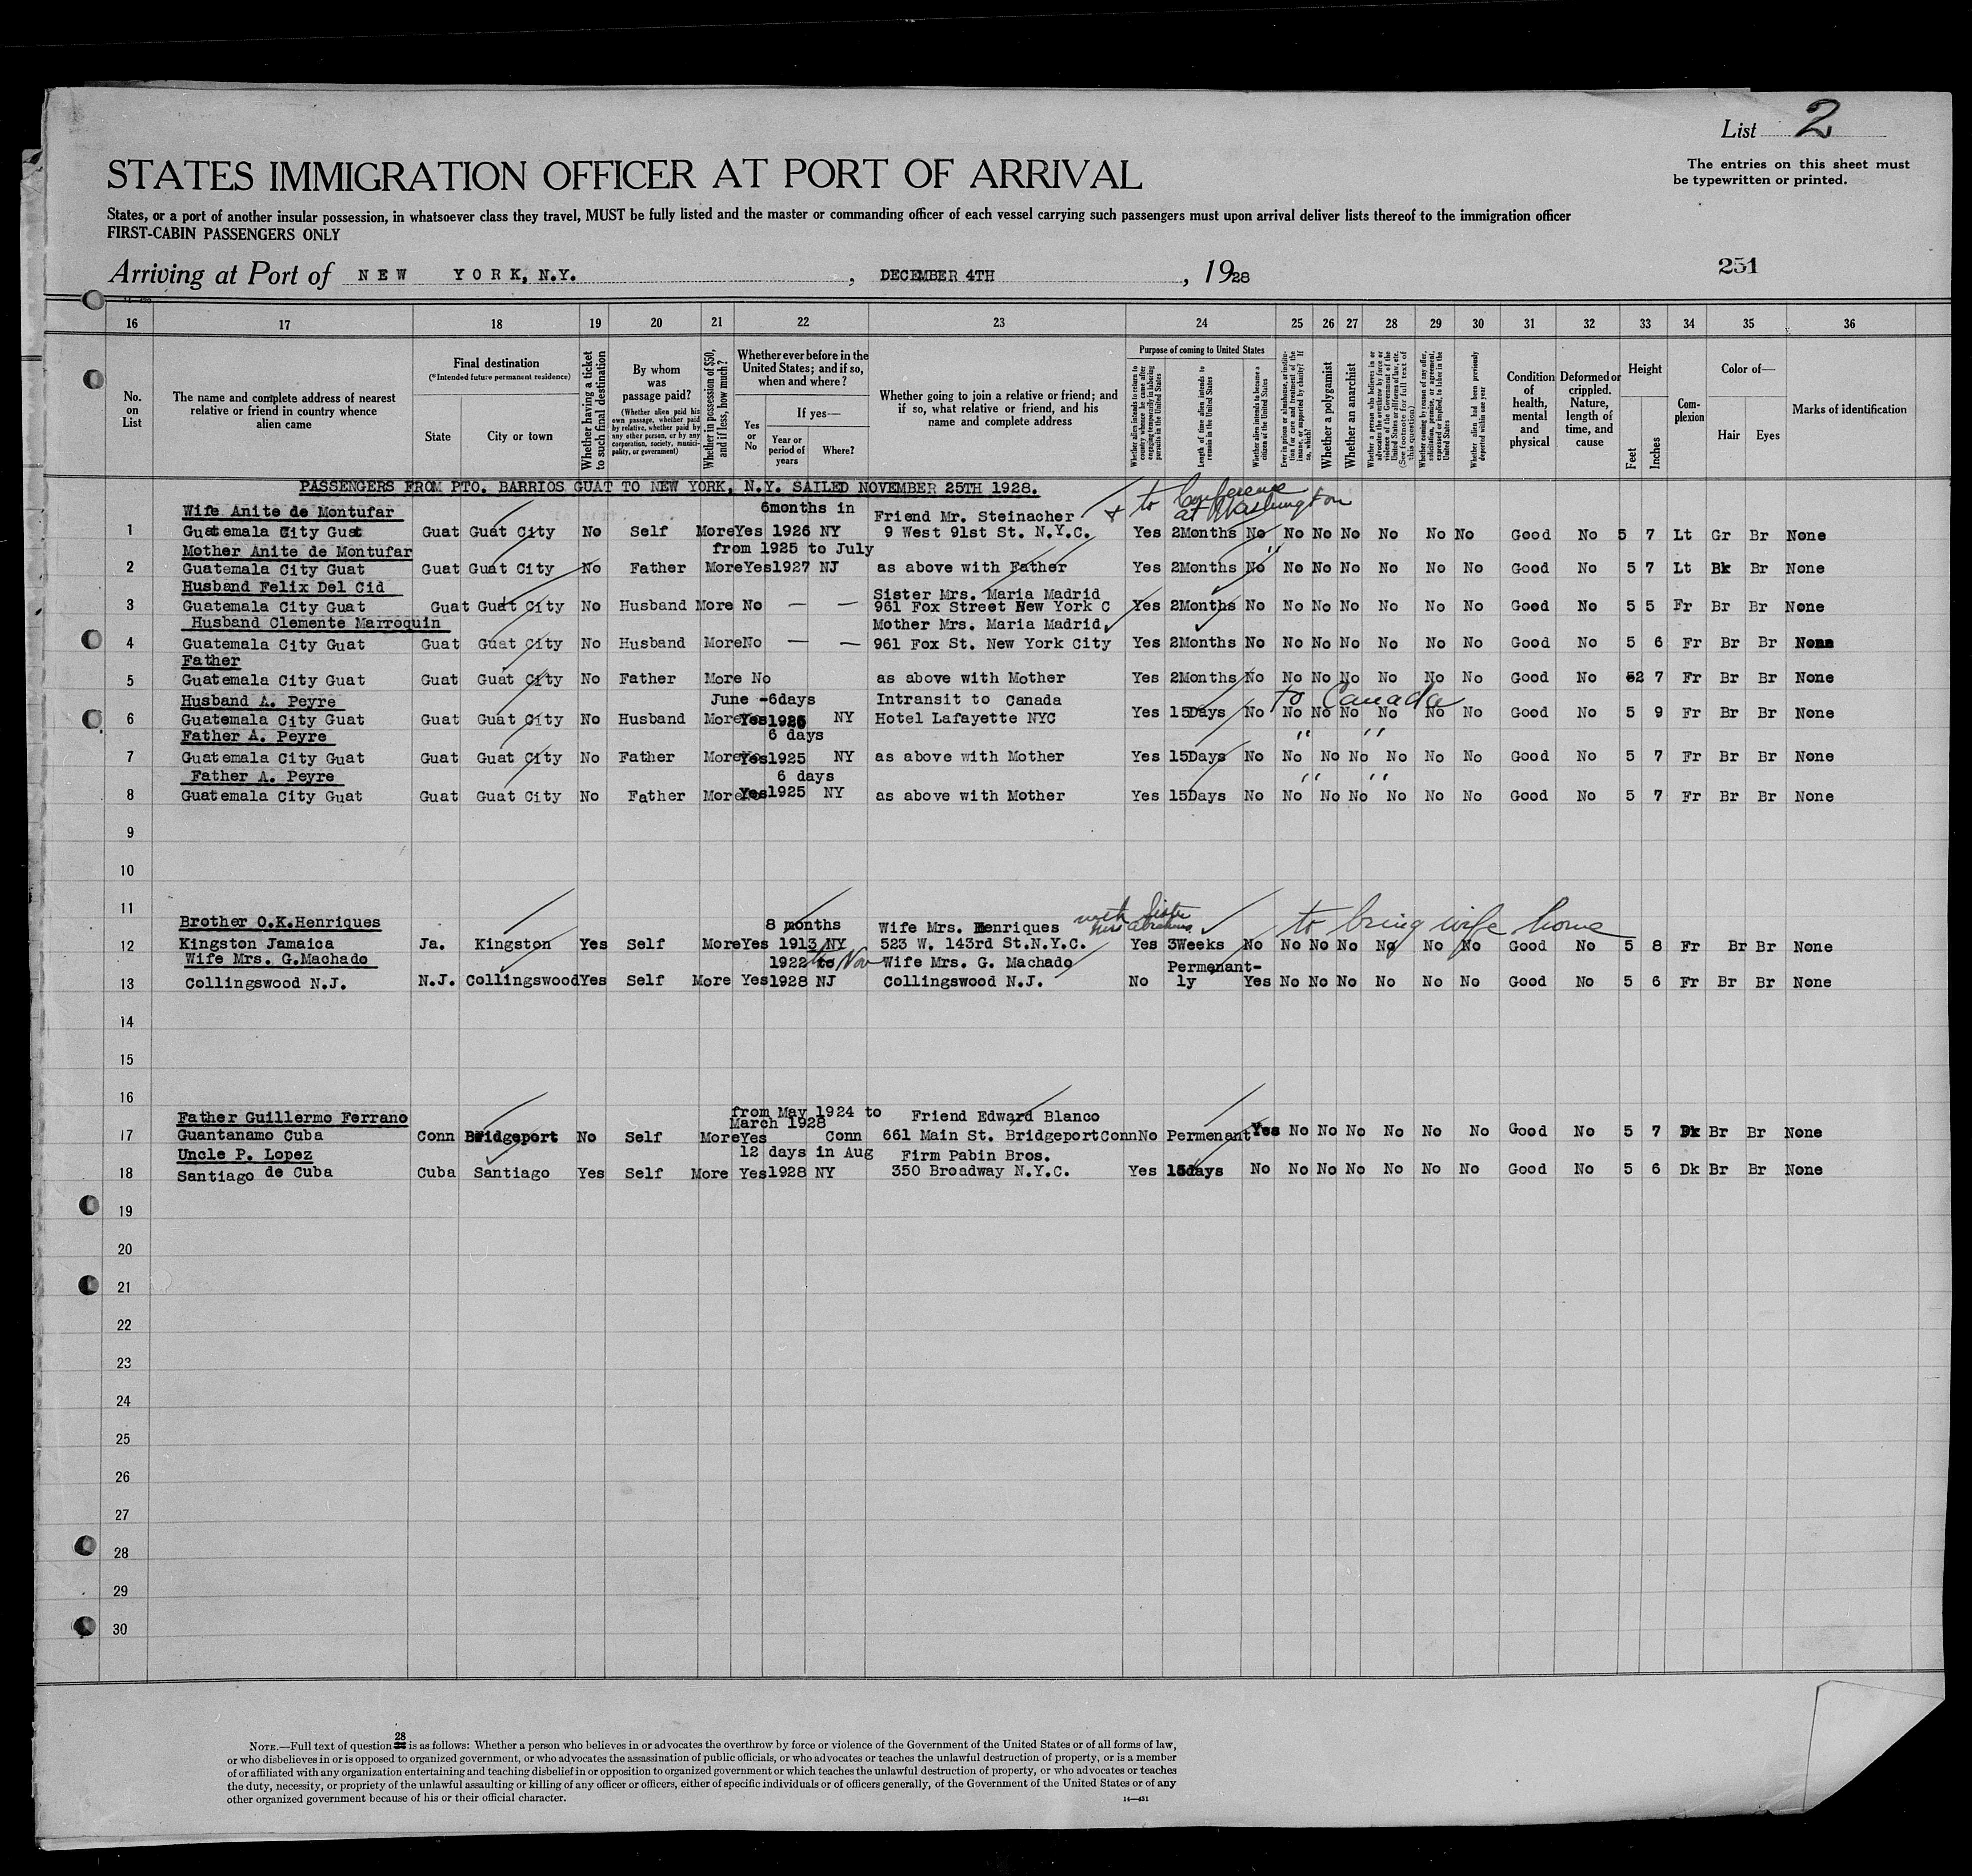 List 2
The entries on this sheet must
be typewritten or printed.
STATES IMMIGRATION OFFICER AT PORT OF ARRIVAL
States, or a port of another insular possession, in whatsoever class they travel, MUST be fully listed and the master or commanding officer of each vessel carrying such passengers must upon arrival deliver lists thereof to the immigration officer
FIRST-CABIN PASSENGERS ONLY
Arriving at Port of NEW YORK, N.Y. , DECEMBER 4TH , 1928
251
16 17 18 19 20 21 22 23 24 25 26 27 28 29 30 31 32 33 34 35 36
No. on List
The name and complete address of nearest relative or friend in country whence alien came
Final destination
(*Intended future permanent residence)
State
City or town
Whether having a ticket to such final destination
By whom was passage paid?
(Whether alien paid his own passage, whether paid by relative, whether paid by any other person, or by any corporation, society, municipality, or government)
Whether in possession of $50, and if less, how much?
Whether ever before in the United States; and if so, when and where?
Yes or No
If yes—
Year or period of years
Where?
Whether going to join a relative or friend; and if so, what relative or friend, and his name and complete address
Purpose of coming to United States
Whether alien intends to return to country whence he came after engaging temporarily in laboring pursuits in the United States
Length of time alien intends to remain in the United States
Whether alien intends to become a citizen of the United States
Ever in prison or almshouse, or institution for care and treatment of the insane, or supported by charity? If so, which?
Whether a polygamist
Whether an anarchist
Whether a person who believes in or advocates the overthrow by force or violence of the Government of the United States or all forms of law, etc. (See footnote for full text of this question)
Whether coming by reason of any offer, solicitation, promise, or agreement, expressed or implied, to labor in the United States
Whether alien had been previously deported within one year
Condition of health, mental and physical
Deformed or crippled. Nature, length of time, and cause
Height
Feet
Inches
Complexion
Color of—
Hair
Eyes
Marks of identification
PASSENGERS FROM PTO. BARRIOS GUAT TO NEW YORK, N.Y. SAILED NOVEMBER 25TH 1928.
to Conference
at Washington
Wife Anite de Montufar 6months in Friend Mr. Steinacher
1 Guatemala City Guat Guat Guat City No Self More Yes 1926 NY 9 West 91st St. N.Y.C. Yes 2Months No No No No No No No Good No 5 7 Lt Gr Br None
Mother Anite de Montufar from 1925 to July "
2 Guatemala City Guat Guat Guat City No Father More Yes 1927 NJ as above with Father Yes 2Months No No No No No No No Good No 5 7 Lt Bk Br None
Husband Felix Del Cid Sister Mrs. Maria Madrid
3 Guatemala City Guat Guat Guat City No Husband More No — — 961 Fox Street New York C Yes 2Months No No No No No No No Good No 5 5 Fr Br Br None
Husband Clemente Marroquin Mother Mrs. Maria Madrid
4 Guatemala City Guat Guat Guat City No Husband More No — — 961 Fox St. New York City Yes 2Months No No No No No No No Good No 5 6 Fr Br Br None
Father
5 Guatemala City Guat Guat Guat City No Father More No as above with Mother Yes 2Months No No No No No No No Good No 52 7 Fr Br Br None
Husband A. Peyre June -6days Intransit to Canada to Canada
6 Guatemala City Guat Guat Guat City No Husband More Yes 1925 NY Hotel Lafayette NYC Yes 15Days No No No No No No No Good No 5 9 Fr Br Br None
Father A. Peyre 6 days " "
7 Guatemala City Guat Guat Guat City No Father More Yes 1925 NY as above with Mother Yes 15Days No No No No No No No Good No 5 7 Fr Br Br None
Father A. Peyre 6 days " "
8 Guatemala City Guat Guat Guat City No Father More Yes 1925 NY as above with Mother Yes 15Days No No No No No No No Good No 5 7 Fr Br Br None
9
10
11
Brother O.K.Henriques 8 months Wife Mrs. Henriques with Sister Mrs Abrahams to bring wife home
12 Kingston Jamaica Ja. Kingston Yes Self More Yes 1913 NY 523 W. 143rd St.N.Y.C. Yes 3Weeks No No No No No No No Good No 5 8 Fr Br Br None
Wife Mrs. G.Machado 1922 to Nov Wife Mrs. G. Machado Permenant-
13 Collingswood N.J. N.J. Collingswood Yes Self More Yes 1928 NJ Collingswood N.J. No ly Yes No No No No No No Good No 5 6 Fr Br Br None
14
15
16
Father Guillermo Ferrano from May 1924 to March 1928 Friend Edward Blanco
17 Guantanamo Cuba Conn Bridgeport No Self More Yes Conn 661 Main St. Bridgeport Conn No Permenant Yes No No No No No No Good No 5 7 Dk Br Br None
Uncle P. Lopez 12 days in Aug Firm Pabin Bros.
18 Santiago de Cuba Cuba Santiago Yes Self More Yes 1928 NY 350 Broadway N.Y.C. Yes 15days No No No No No No No Good No 5 6 Dk Br Br None
19
20
21
22
23
24
25
26
27
28
29
30
NOTE.—Full text of question 28 is as follows: Whether a person who believes in or advocates the overthrow by force or violence of the Government of the United States or of all forms of law,
or who disbelieves in or is opposed to organized government, or who advocates the assassination of public officials, or who advocates or teaches the unlawful destruction of property, or is a member
of or affiliated with any organization entertaining and teaching disbelief in or opposition to organized government or which teaches the unlawful destruction of property, or who advocates or teaches
the duty, necessity, or propriety of the unlawful assaulting or killing of any officer or officers, either of specific individuals or of officers generally, of the Government of the United States or of any
other organized government because of his or their official character.
14—431